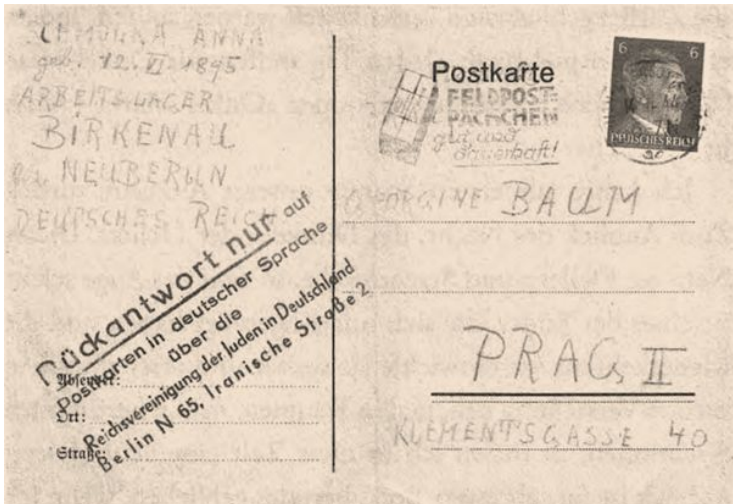 SCHMOLKA ANNA
geb. 12. VI 1895
ARBEITSLAGER
BIRKENAU
NEUBERUN
DEUTSCHES REICH
Rückantwort nur auf
Postkarten in deutscher Sprache
über die
Reichsvereinigung der Juden in Deutschland
Berlin N 65, Iranische Straße 2
Absender:
Ort:
Straße:
Postkarte
FELDPOST-
PÄCKCHEN
gut und
dauerhaft!
6 6
DEUTSCHES REICH
GEORGINE BAUM
PRAG II
KLEMENTSGASSE 40